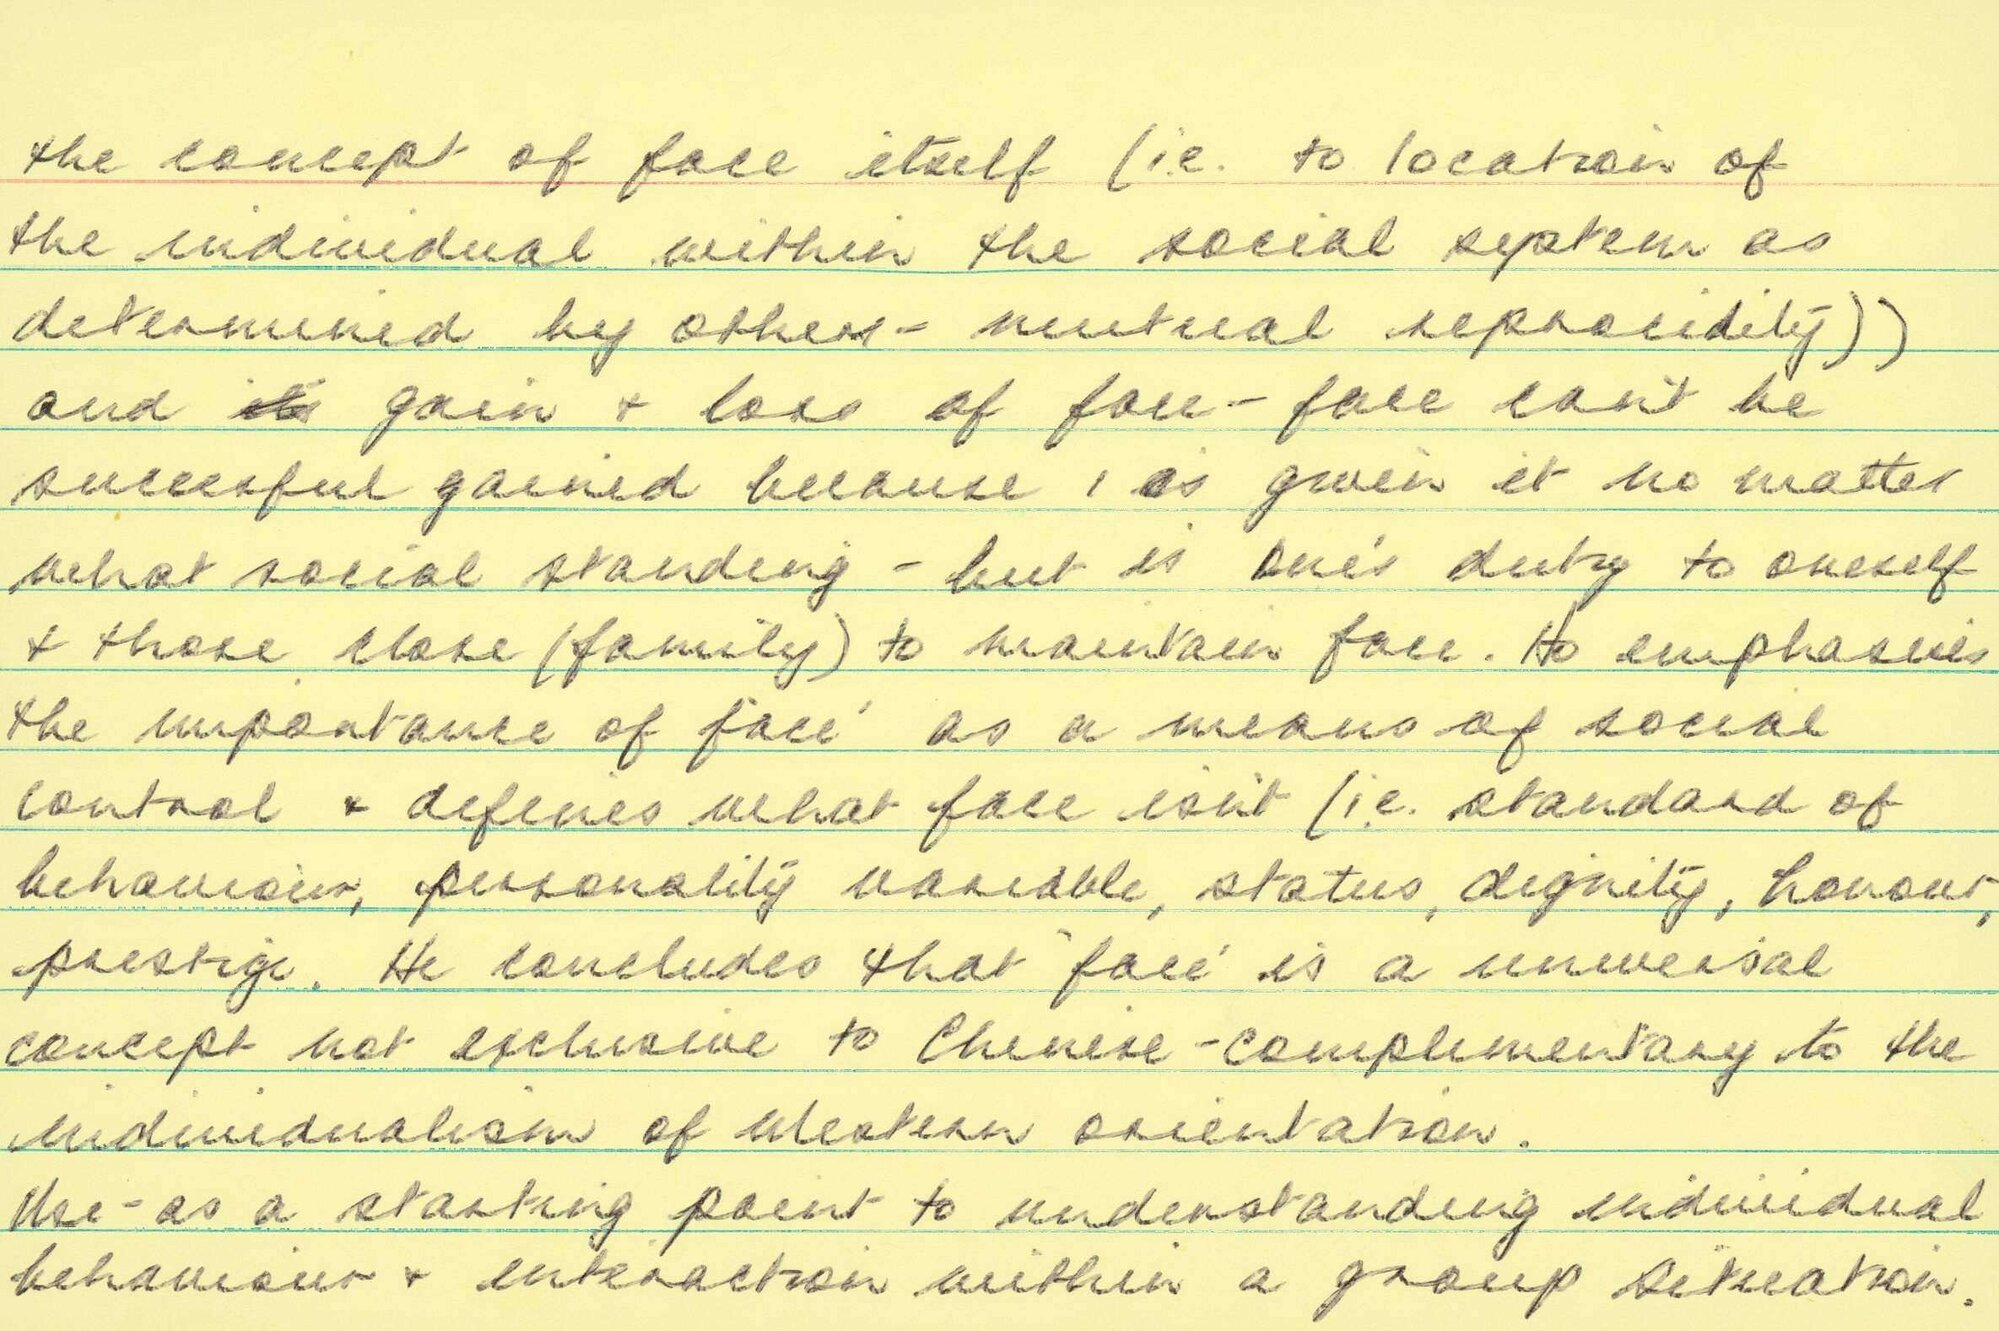 the concept of face itself (i.e. to location of
the individual within the social system as
determined by others - mutual reprocidity))
and gain + loss of face - face can't be
successful gained because 1 is given it no matter
what social standing - but is one's duty to oneself
+ those close (family) to maintain face. Ho emphasises
the importance of 'face' as a means of social
control + defines what face isn't (i.e. standard of
behaviour, personality variable, status, dignity, honour,
prestige. He concludes that 'face' is a universal
concept not exclusive to Chinese - complimentary to the
individualism of Western orientation.
Use - as a starting point to understanding individual
behaviour + interaction within a group situation.